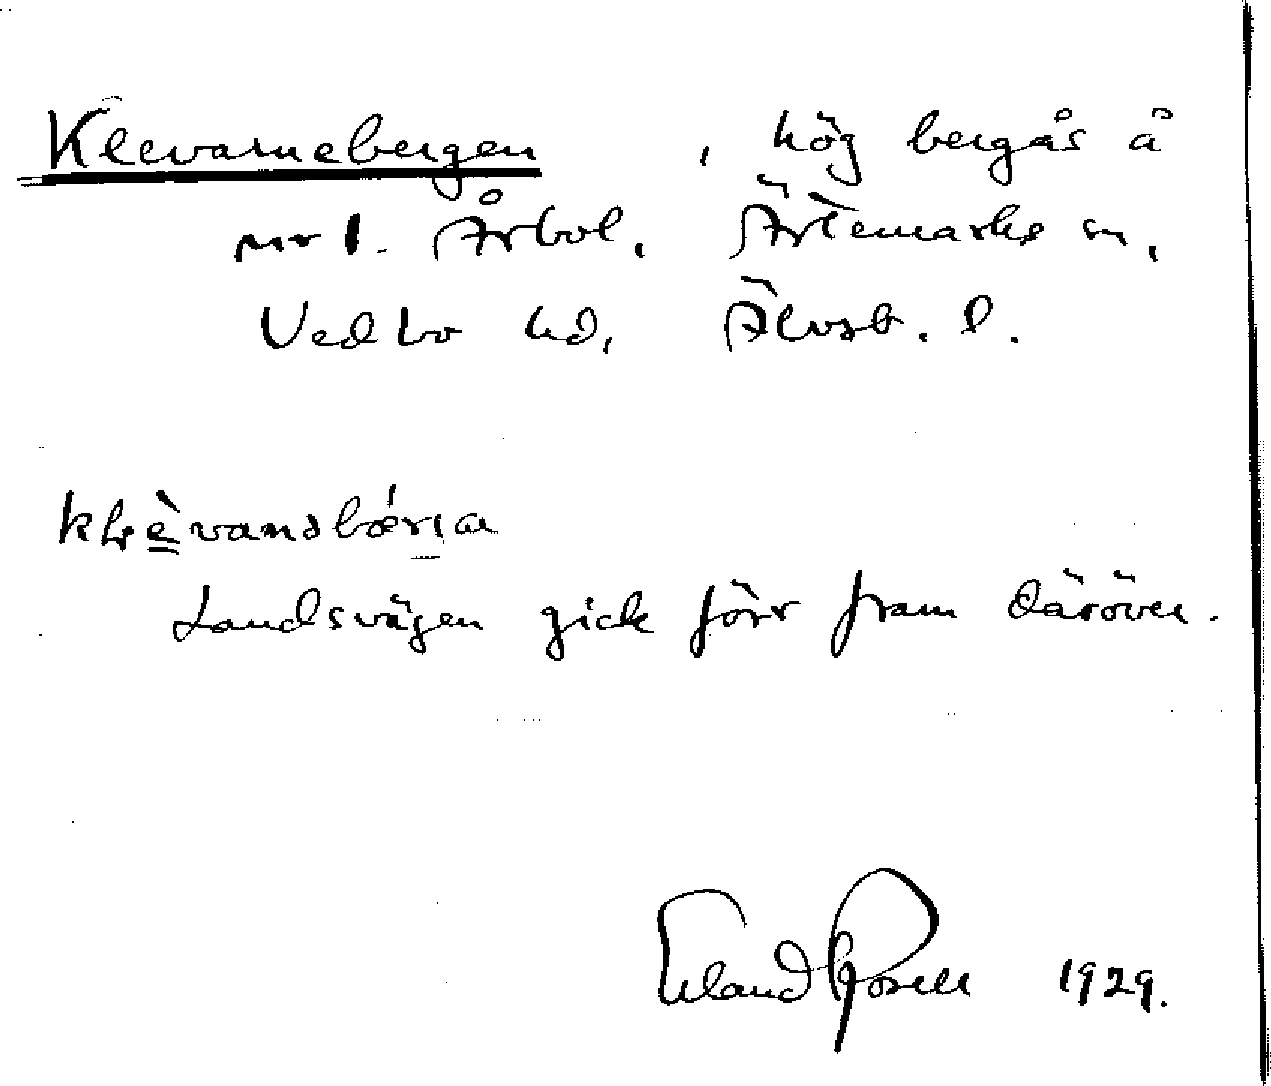 Klevarnebergen , hög bergås å
nr 1. Årbol, Ärtemarks sn,
Vedbo hd, Älvsb. l.
Landsvägen gick förr fram däröver.
Erland Rosell 1929.